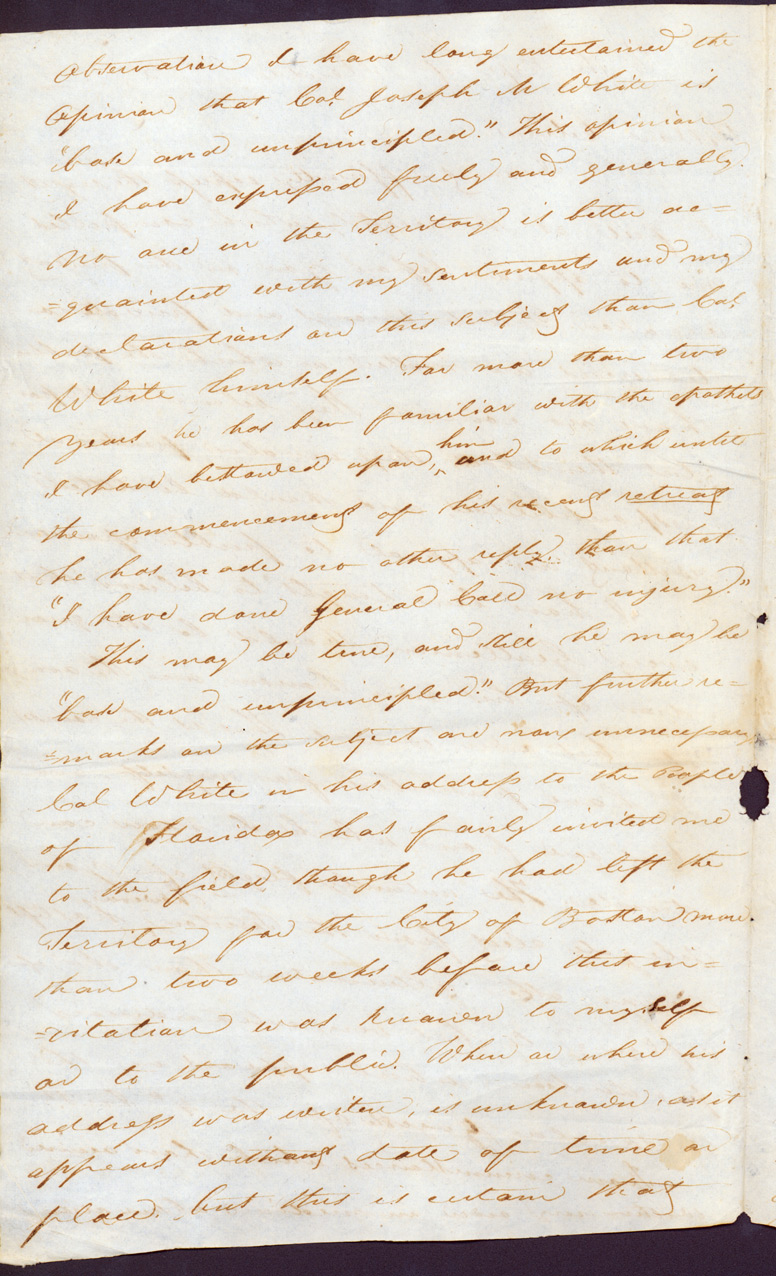 Observation I have long entertained the
Opinion that Col. Joseph M White is
"base and unprincipled." This opinion
I have expressed freely and generally.
No one in the Territory is better ac=
=quainted with my sentiments and my
declarations on this subject than Col.
White himself. For more than two
years he has been familiar with the epithets
I have bestowed upon, him and to which until
the commencement of his recent retreat
he has made no other reply than that
"I have done General Call no injury."
This may be true, and still he may be
"base and unprincipled." But further re=
=marks on the subject are now unnecessary
Col White in his address to the People
of Florida has fairly invited me
to the field, though he had left the
Territory for the City of Boston more
than two weeks before this in=
=vitation was known to myself
or to the public. When or where his
address was writen, is unknown, as it
appears without date of time or
place. but this is certain that